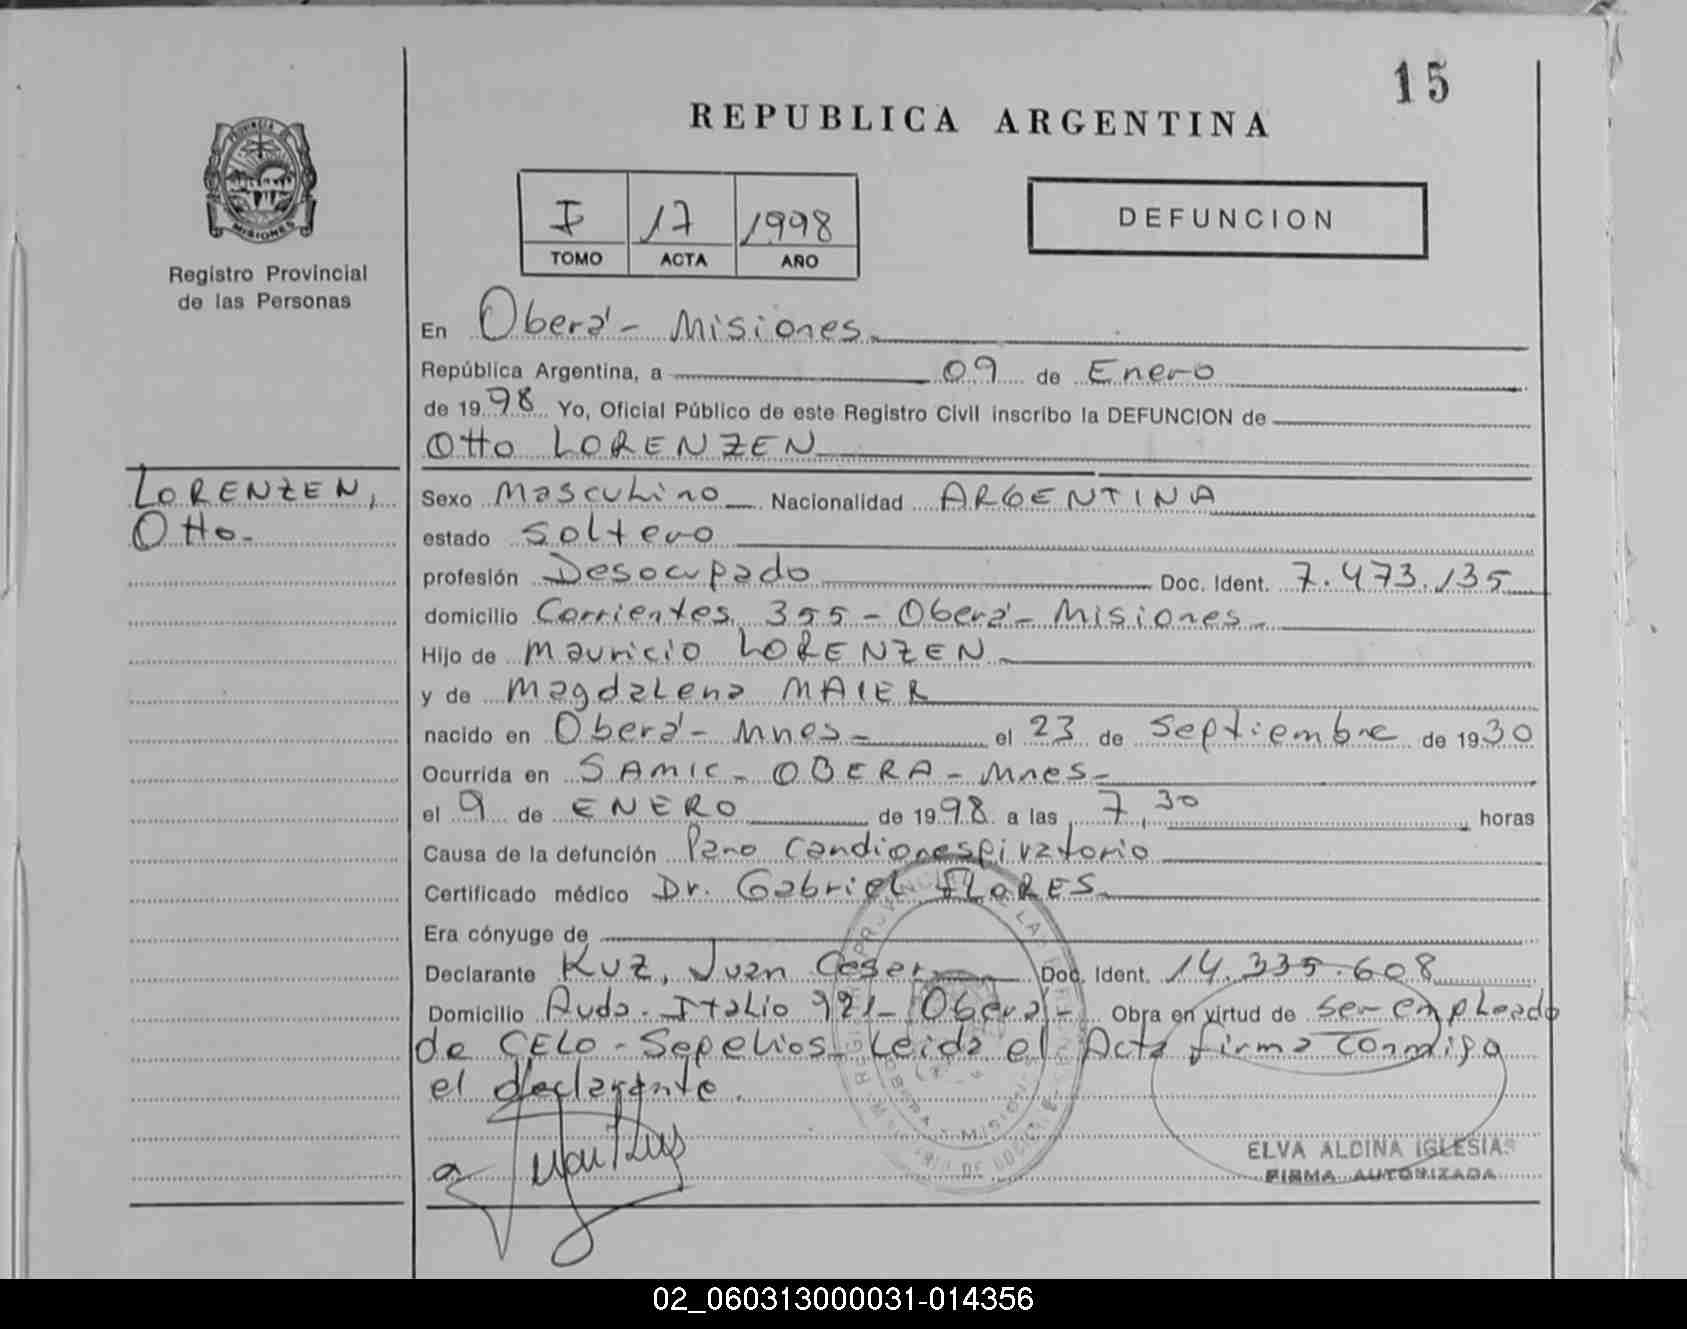 15
REPUBLICA ARGENTINA
PROVINCIA DE
MISIONES
Registro Provincial
de las Personas
I 17 1998
TOMO ACTA AÑO
DEFUNCION
En Oberá - Misiones
República Argentina, a 09 de Enero
de 1998 Yo, Oficial Público de este Registro Civil inscribo la DEFUNCION de
Otto LORENZEN
LORENZEN,
Otto.
Sexo Masculino Nacionalidad ARGENTINA
estado Soltero
profesión Desocupado Doc. Ident. 7.473.135
domicilio Corrientes 355 - Oberá - Misiones -
Hijo de Mauricio LORENZEN
y de Magdalena MAIER
nacido en Oberá - Mnes - el 23 de Septiembre de 1930
Ocurrida en SAMIC - OBERA - Mnes -
el 9 de ENERO de 1998 a las 7,30 horas
Causa de la defunción Paro Cardiorespiratorio
Certificado médico Dr. Gabriel FLORES
Era cónyuge de
Declarante KUZ, Juan Cesar Doc. Ident. 14.335.608
Domicilio Avda. Italia 921 - Oberá - Obra en virtud de ser empleado
de CELO - Sepelios - Leida el Acta firma conmigo
el declarante.
ELVA ALDINA IGLESIAS
FIRMA AUTORIZADA
02_060313000031-014356